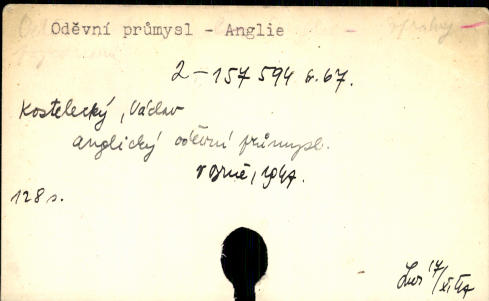 Oděvní průmysl - Anglie
2-157594 6.67.
Kostelecký, Václav
anglický oděvní průmysl.
v Brně, 1947.
128 s.
17/XI 47